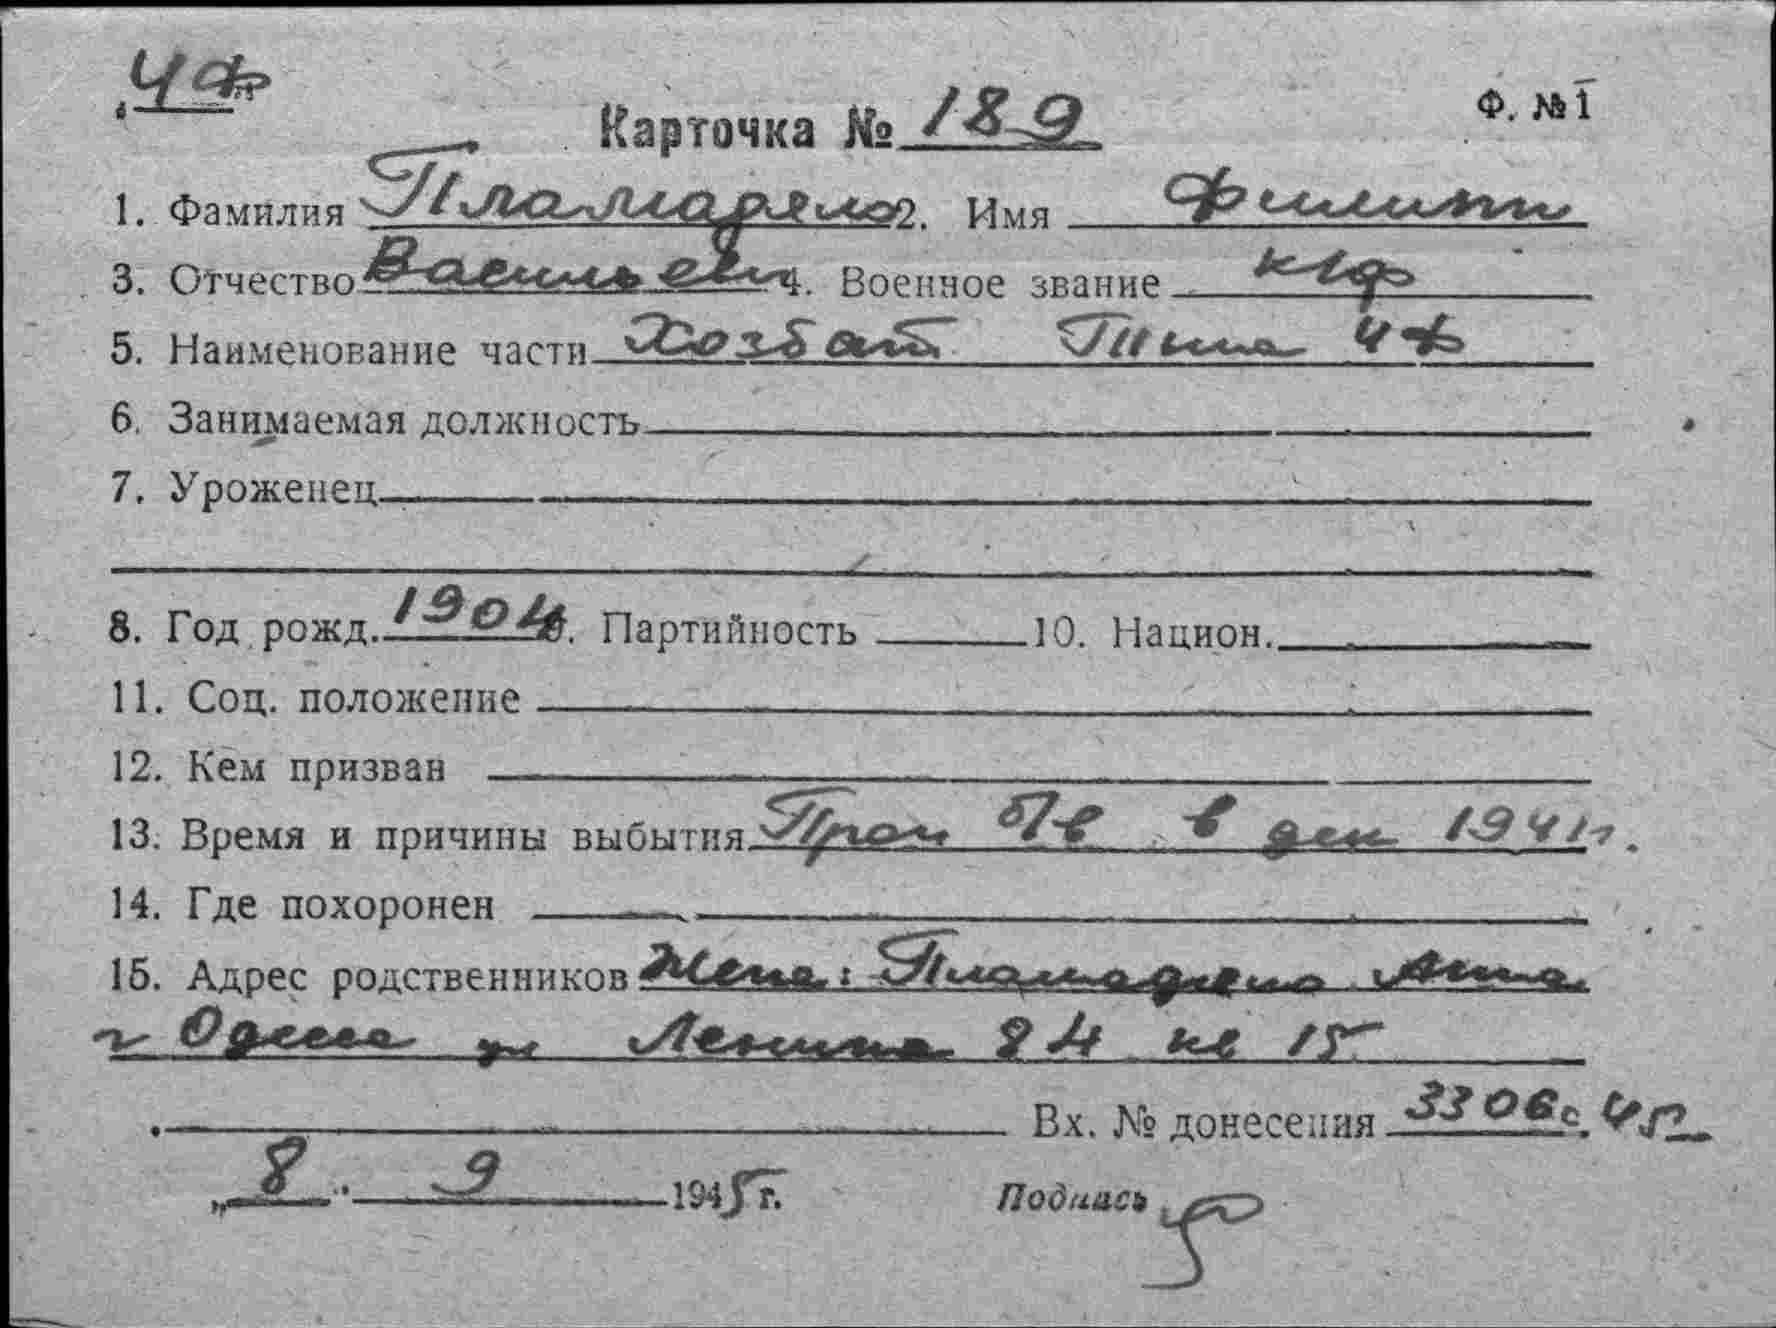 ЧФ
Карточка № 189 Ф. №1
1. Фамилия 2. Имя Филипп
3. Отчество Васильевич 4. Военное звание к-кр
5. Наименование части Хозбат Тыла ЧФ
6. Занимаемая должность
7. Уроженец
8. Год рожд. 1904 9. Партийность 10. Национ.
11. Соц. положение
12. Кем призван
13. Время и причины выбытия Проп б/в в дек 1941г.
14. Где похоронен
15. Адрес родственников Жена: Анна
г Одесса ул Ленина 24 кв 15
Вх. № донесения 3306с. 45г
„8" 9 1945 г. Подпись